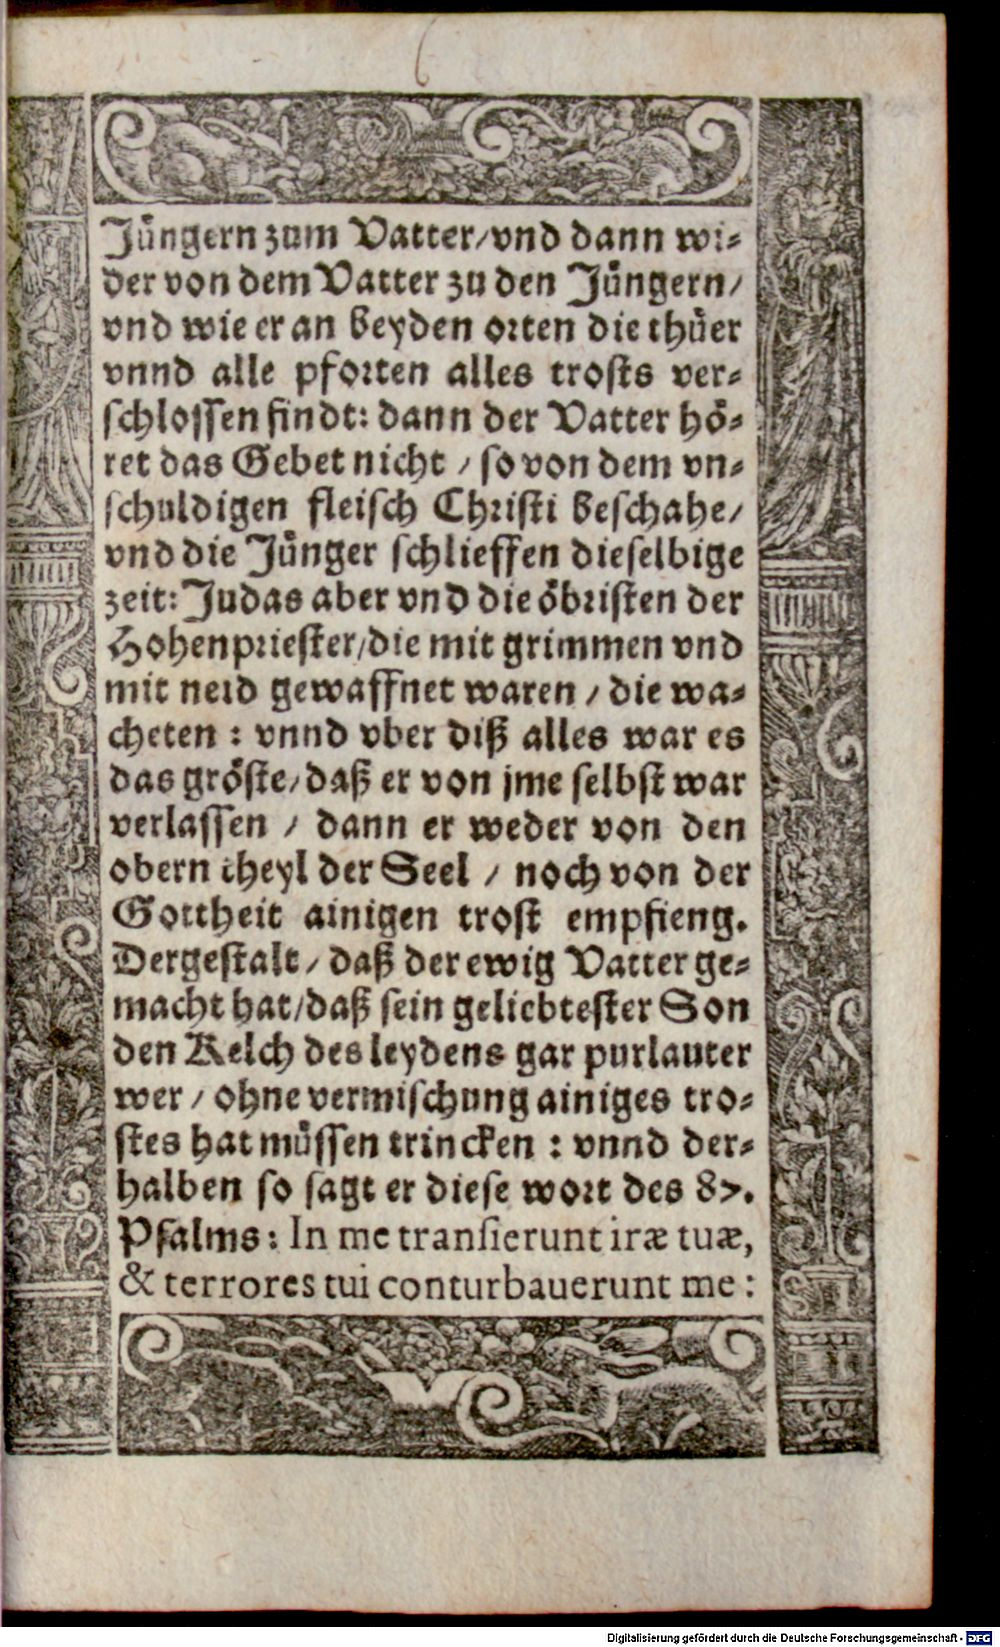 6
Jüngern zum Vatter/vnd dann wi-
der von dem Vatter zu den Jüngern/
vnd wie er an beyden orten die thüer
vnnd alle pforten alles trosts ver-
schlossen findt: dann der Vatter hö-
ret das Gebet nicht / so von dem vn-
schuldigen fleisch Christi beschahe/
vnd die Jünger schlieffen dieselbige
zeit: Judas aber vnd die öbristen der
Hohenpriester/die mit grimmen vnd
mit neid gewaffnet waren / die wa-
cheten : vnnd vber diß alles war es
das gröste/daß er von jme selbst war
verlassen / dann er weder von den
obern theyl der Seel / noch von der
Gottheit ainigen trost empfieng.
Dergestalt/ daß der ewig Vatter ge-
macht hat/daß sein geliebtester Son
den Kelch des leydens gar purlauter
wer / ohne vermischung ainiges tro-
stes hat müssen trincken : vnnd der-
halben so sagt er diese wort des 87.
Psalms: In me transierunt iræ tuæ,
& terrores tui conturbauerunt me:
Digitalisierung gefördert durch die Deutsche Forschungsgemeinschaft - DFG